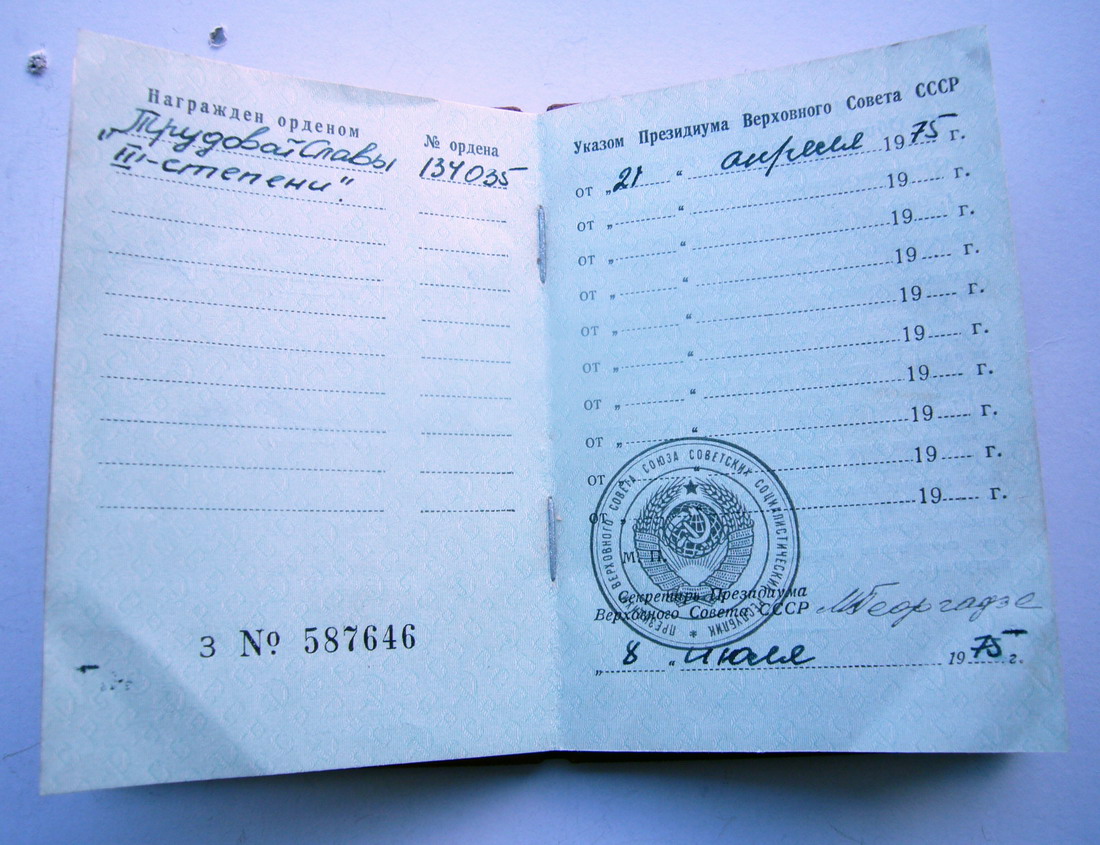 Награжден орденом
№ ордена
„Трудовой Славы
134035
III-степени".
З № 587646
Указом Президиума Верховного Совета СССР
от „21" апреля 1975 г.
от „ " 19 г.
от „ " 19 г.
от „ " 19 г.
от „ " 19 г.
от „ " 19 г.
от „ " 19 г.
от „ " 19 г.
от „ " 19 г.
от „ " 19 г.
ПРЕЗИДИУМ ВЕРХОВНОГО СОВЕТА СОЮЗА СОВЕТСКИХ СОЦИАЛИСТИЧЕСКИХ РЕСПУБЛИК *
М. П.
Секретарь Президиума
Верховного Совета СССР МГеоргадзе
„8" июля 1975 г.